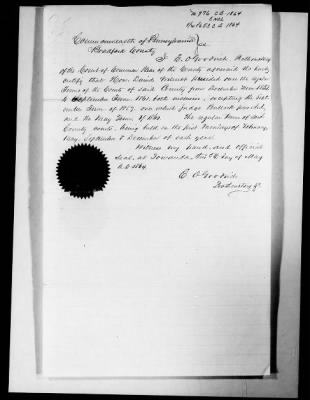 CB 1864
Commonwealth of Pennsylvania } ss.
Bradford County
I E. O. Goodrich Prothonotary
of the Court of Common Pleas of the County aforesaid do hereby
certify that Hon. David Wilmot Presided over the regular
Terms of the Courts of said County from December Term 1851
to September Term 1861, both inclusive, excepting the Sept-
ember Term of 1857, over which Judge Bullock presided,
and the May Term of 1861. The regular terms of said
County courts, being held on the first Mondays of February,
May, September & December of each year.
Witness my hand and official
seal, at Towanda, this day of May
A.D. 1864.
E. O. Goodrich
Prothonotary